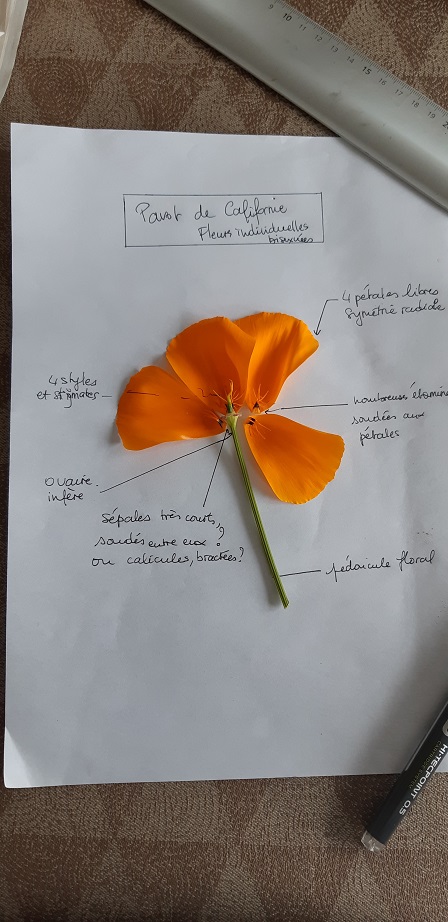 Pavot de Californie
Fleurs individuelles
bisexuées
4 pétales libres
Symétrie radiale
4 styles
et stigmates
nombreuses étamine
soudées aux
pétales
Ovaire
infère
Sépales très courts,
soudés entre eux ?
ou calicules, bractées ?
pédoncule floral
HI-TECPOINT 05
9 10 11 12 13 14 15 16 17 18 19 2